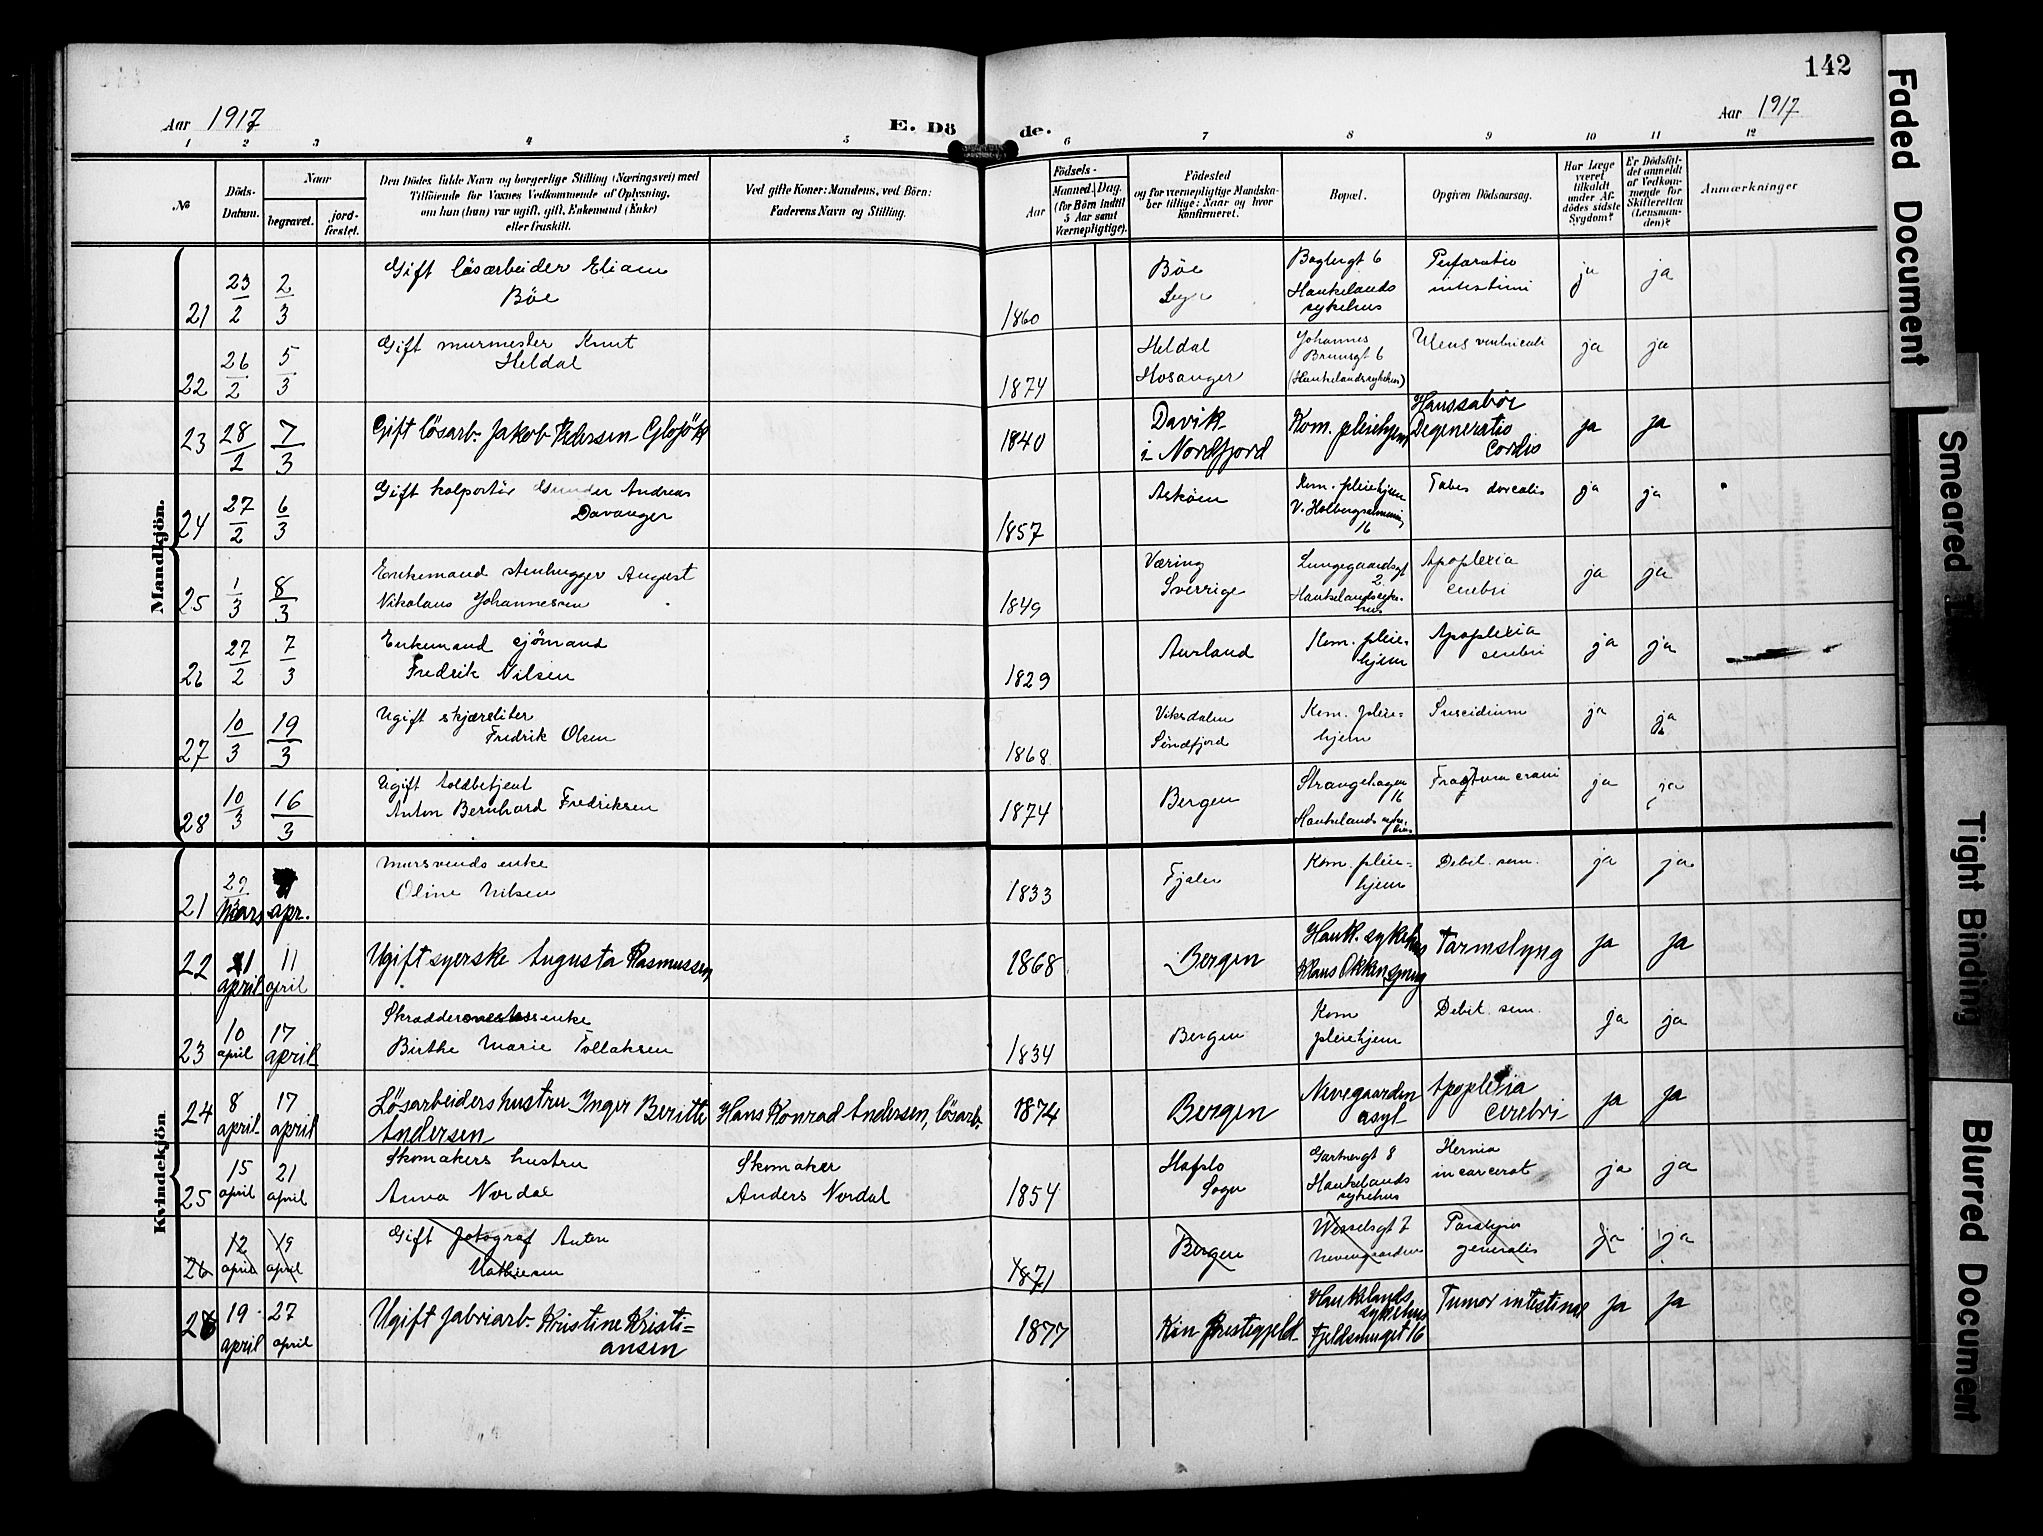 142
Aar 1917
E. Dö
de.
Aar 1917
1 2 3 4 5 6 7 8 9 10 11 12
№
Döds-
Datum.
Naar
begravet.
jord-
fæstet.
Den Dödes fulde Navn og borgerlige Stilling (Næringsvei) med
Tilföiende for Voxnes Vedkommende af Oplysning,
om han (hun) var ugift, gift, Enkemand (Enke)
eller fraskilt.
Ved gifte Koner: Mandens, ved Börn:
Faderens Navn og Stilling.
Födsels-
Aar
Maaned. Dag.
(for Börn indtil
5 Aar samt
Værnepligtige).
Födested
og for værnepligtige Mandska-
ber tillige: Naar og hvor
konfirmeret.
Bopæl.
Opgiven Dödsaarsag.
Har Læge
været
tilkaldt
under Af-
dödes sidste
Sygdom?
Er Dödsfal-
det anmeldt
af Vedkom-
mende for
Skifteretten
(Lensman-
den)?
Anmærkninger
Mandkjön.
21 23/2 2/3 Gift løsarbeider Eliam
Böe
1860 Böe
Baglergt 6
Haukelands
sykehus
Perforatio
intestini
ja ja
22 26/2 5/3 Gift murmester Knut
Heldal
1874 Heldal
Hosanger
Johannes
Brunsgt 6
(Haukelandssykehus)
Ulcus ventriculi
ja ja
23 28/2 7/3 Gift lösarb. Jakob Pedersen
1840 Davik
i Nordfjord
Kom. pleiehjem
Degeneratio
cordis
ja ja
24 27/2 6/3 Gift kolportör Gunder Andreas
Davanger
1857 Asköen
Kom. pleiehjem
V. Holbergsalmening
16
Tabes dorsalis
ja ja
25 1/3 8/3 Enkemand stenhugger August
Nikolaus Johannesen
1849 Væring
Sverrige
Lungegaardsgt
2
Haukelandssyke-
hus
Apoplexia
cerebri
ja ja
26 27/2 7/3 Enkemand sjömand
Fredrik Nilsen
1829 Aurland
Kom. pleie-
hjem
Apoplexia
cerebri
ja ja
27 10/3 19/3 Ugift skjærsliter
Fredrik Olsen
1868 Viksdalen
Söndfjord
Kom. pleie-
hjem
Suicidium
ja ja
28 10/3 16/3 Ugift toldbetjent
Anton Bernhard Fredriksen
1874 Bergen
Strangehagen
16
Haukelands syke-
hus
Fractura cranii
ja ja
Kvindekjön
21 29
Mars apr.
Mursvends enke
Oline Nilsen
1833 Fjaler
Kom. pleie-
hjem
Debil. sen.
ja ja
22 1 11
april april
Ugift syerske Augusta Rasmussen
1868 Bergen
Haukl. sykehus
Klaus Okkensmug
Tarmslyng
ja ja
23 10 17
april april
Skreddermestersenke
Birthe Marie Tollaksen
1834 Bergen
Kom
pleiehjem
Debil. sen.
ja ja
24 8 17
april april
Lösarbeiders hustru Inger Beritte
Andersen
Hans Konrad Andersen, lösarb.
1874 Bergen
Nevegaarden
asyl
Apoplexia
cerebri
ja ja
25 15 21
april april
Skomakers hustru
Anna Nordal
Skomaker
Anders Nordal
1854 Hafslo
Sogn
Gartnergt 8
Haukelands
sykehus
Hernia
incarcerat
ja ja
26 12 19
april april
Gift fotograf Anton
Mathiesen
1871 Bergen
Wesselsgt 7
Nevengaarden
Paralysis
generalis
ja ja
26 19 27
april april
Ugift fabriarb. Kristine Kristi-
ansen
1877 Kin Prestegjeld
Haukelands
sykehus
Fjeldsmuget 16
Tumor intestinae
ja ja
Faded Document
Smeared
Tight Binding
Blurred Document